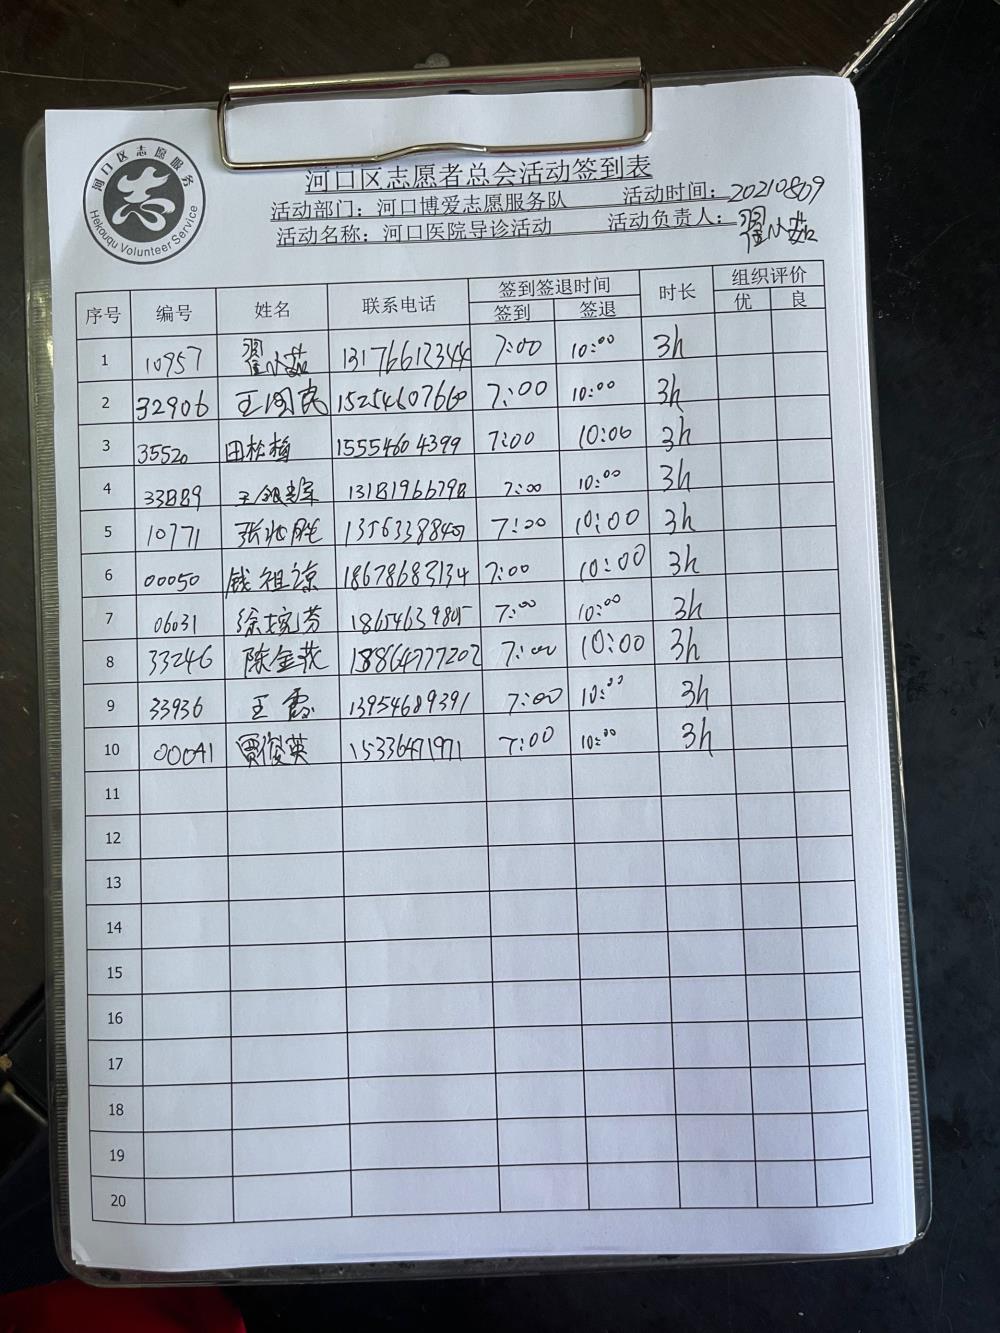 河口区志愿服务
志
Hekouqu Volunteer Service
河口区志愿者总会活动签到表
活动部门：河口博爱志愿服务队 活动时间：20210809
活动名称：河口医院导诊活动 活动负责人：翟小茹
序号 编号 姓名 联系电话 签到签退时间 时长 组织评价
签到 签退 优 良
1 10957 翟小茹 13176612344 7:00 10:00 3h
2 32906 王国民 15254607660 7:00 10:00 3h
3 35520 田松梅 15554604399 7:00 10:00 3h
4 33889 13181966798 7:00 10:00 3h
5 10771 张兆胜 13563388407 7:00 10:00 3h
6 00050 钱祖谅 18678683134 7:00 10:00 3h
7 06031 徐婉芳 7:00 10:00 3h
8 33246 陈金花 18864777202 7:00 10:00 3h
9 33936 王霞 13954689391 7:00 10:00 3h
10 00041 贾俊英 15336471971 7:00 10:00 3h
11
12
13
14
15
16
17
18
19
20